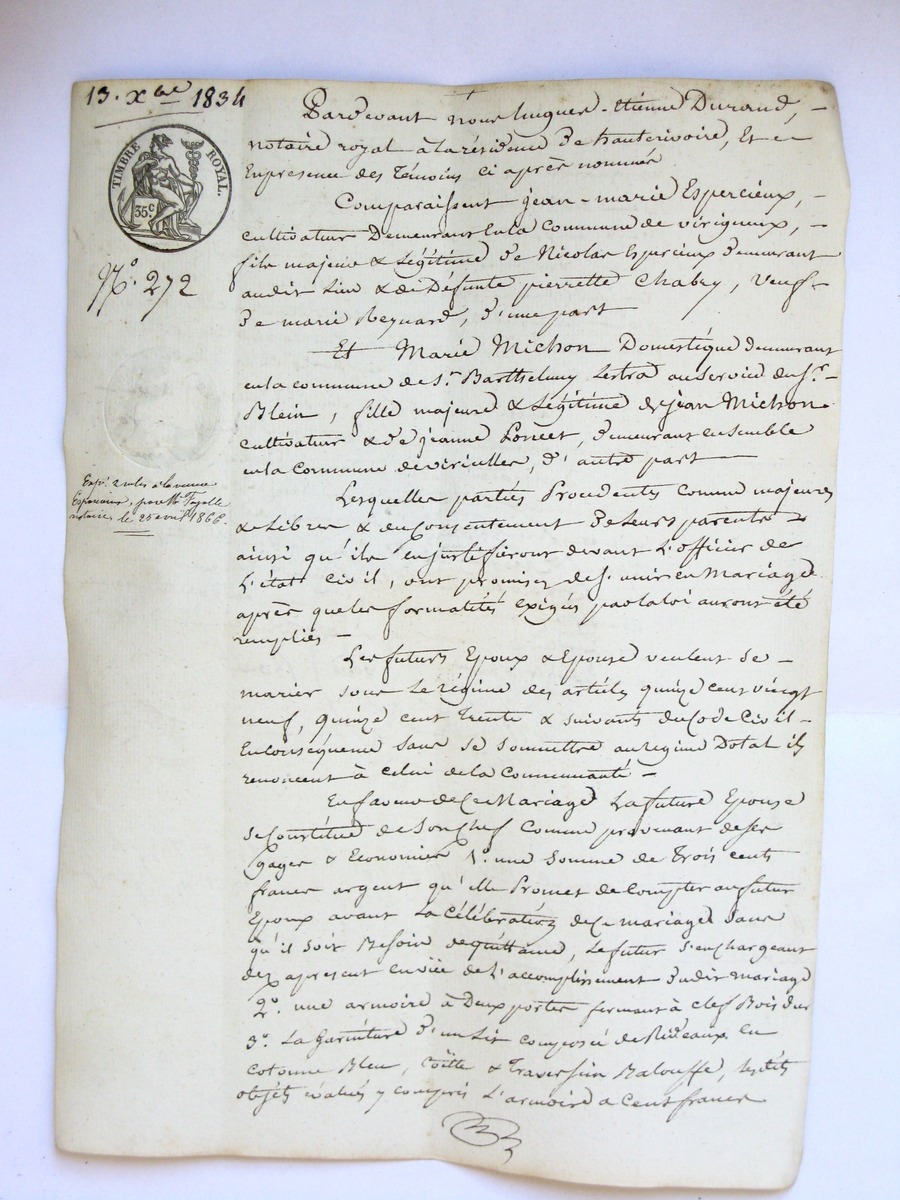 13. Xbre 1834
TIMBRE ROYAL.
35c
No. 272
Expé. 2 roles à la veuve
Espercieux, par Me Fayolle
notaire le 25 avril 1866.
Pardevant nous hugues-Etienne Durand, -
notaire royal à la résidence De hauterivoire, Et en
Enpresence des Témoins ci après nommés
Comparaissent jean-marie Espercieux, -
cultivateur Demeurant en la Commune de virigneux, -
fils majeur & Légitime De Nicolas Espercieux Demeurant
audit Lieu & de Défunte pierrette Chabry, Veuf -
De marie Reynard, D'une part
Et Marie Michon Domestique demeurant
en la commune de St. Barthelemy Lestra au service du Sr. -
Blein, fille majeure & Légitime de jean Michon
cultivateur & De jeanne Poncet, Demeurant ensemble
en la Commune de viricelles, D'autre part
Lesquelles parties Procedentes comme majeures
& Libres & du Consentement De leurs parents
ainsi qu'ils en justifieront devant L'officier de
L'état Civil, ont promis de S'unir en Mariage
après que les formalités exigées par la loi auront été
remplies -
Les futurs Epoux & Epouse veulent se -
marier sous le régime des articles quinze cent vingt
neuf, quinze cent Trente & suivants du Code Civil -
En conséquence sans se soumettre au regime Dotal ils
renoncent à celui de la Communauté -
En faveur de Ce Mariage La future Epouse
se Constitue de Son Chef Comme provenant de ses
gages & Economies 1o. une somme de Trois cents
francs argent qu'elle Promet de Compter au futur
Epoux avant La Célébration de Ce mariage sans
qu'il soit Besoin de quittance, Le futur s'en chargeant
dez apresent en vüe de L'accomplissement Dudit mariage
2o. une armoire à Deux portes fermant à clef Bois Dur
3o. La garniture D'un Lit composée de Rideaux en
cotonne Bleu, Coëtte & Traversin Balouffe, lesdits
objets évalués y compris L'armoire a Cent francs